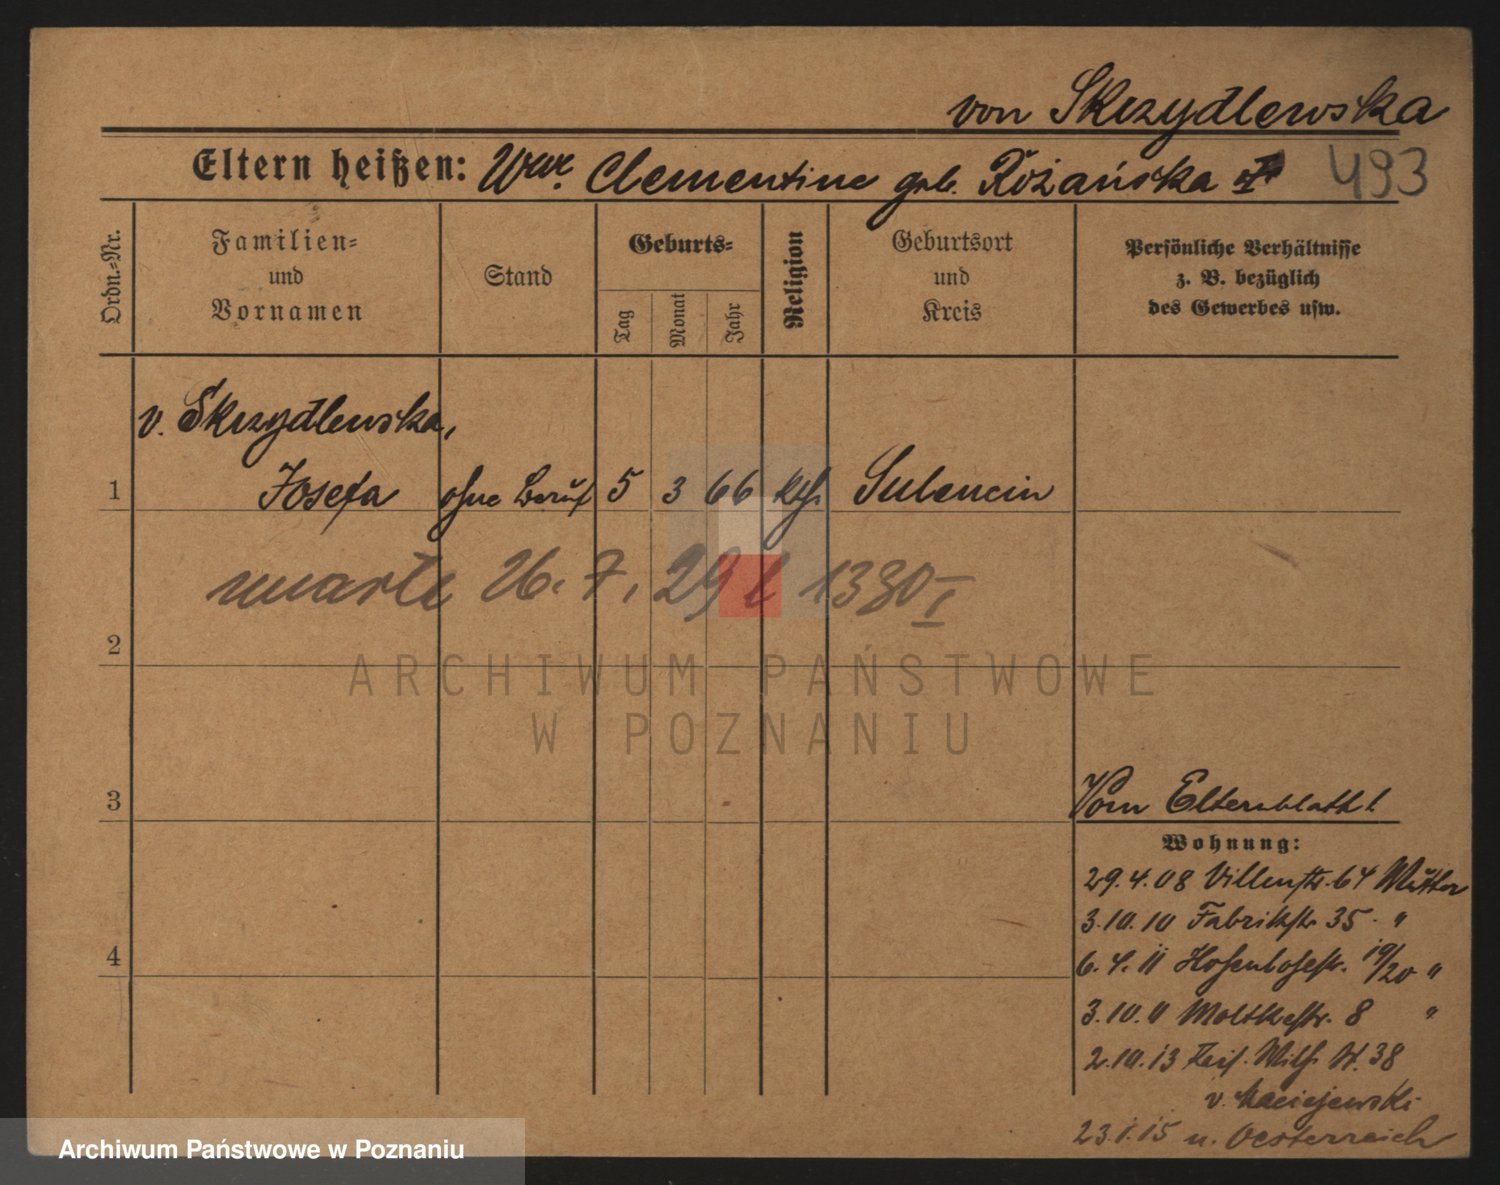 von Skrzydlewska
Eltern heißen: Wwe. Clementine geb. Różańska
493
Ordn.-Nr.
Familien-
und
Vornamen
Stand
Geburts-
Tag
Monat
Jahr
Religion
Geburtsort
und
Kreis
Persönliche Verhältnisse
z. B. bezüglich
des Gewerbes usw.
v. Skrzydlewska,
1 Josefa ohne Beruf 5 3 66 kth. Sulencin
umarła 26. 7. 29 l 1330 I
2
ARCHIWUM PAŃSTWOWE
W POZNANIU
3
Vom Elternblatt
Wohnung:
29.4.08 Villenstr. 64 Mutter
3.10.10 Fabrikstr 35 "
4
6.4.11 Hohenlohestr. 19/20 "
3.10.11 Moltkestr. 8 "
2.10.13 Wilh. 38
v. Maciejewski
23.1.15 n. Oesterreich
Archiwum Państwowe w Poznaniu